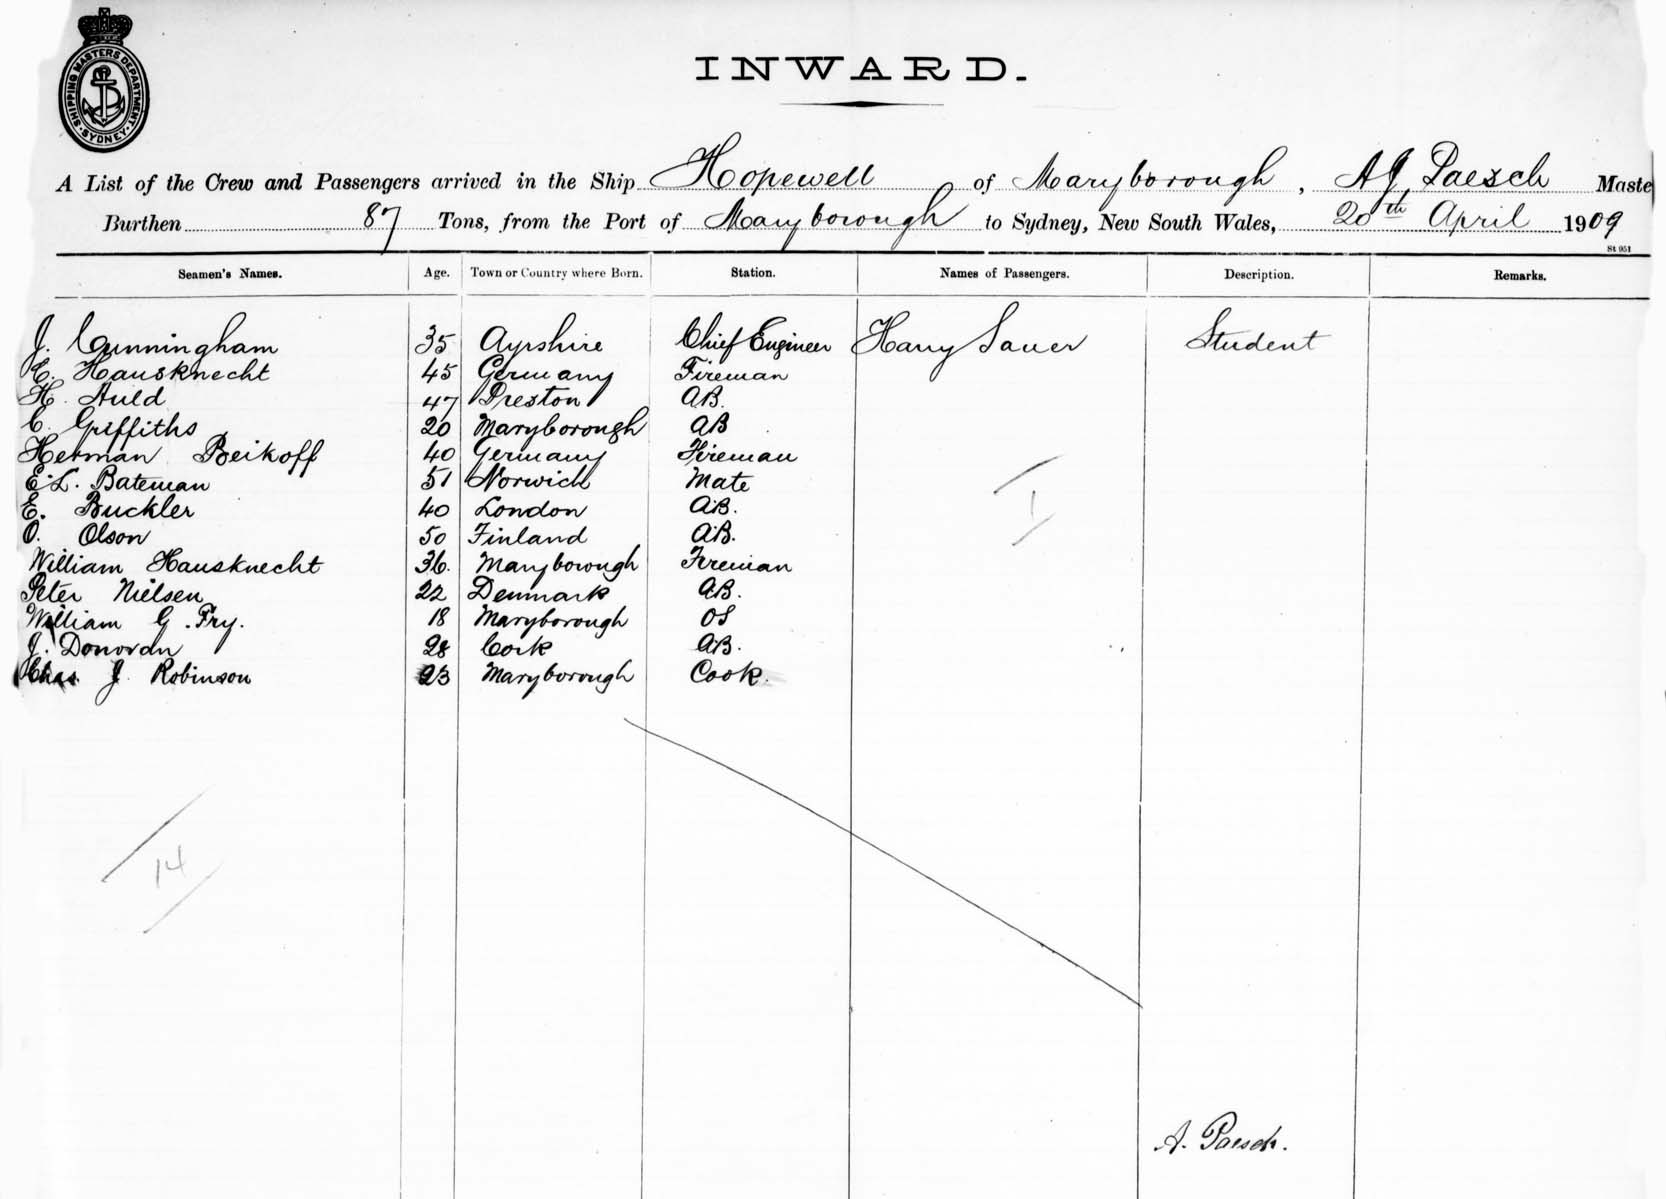 SHIPPING MASTERS DEPARTMENT. SYDNEY
INWARD.
A List of the Crew and Passengers arrived in the Ship Hopewell of Maryborough, A J Paesch Maste
Burthen 87 Tons, from the Port of Maryborough to Sydney, New South Wales, 20th April 1909
St 951
Seamen's Names. Age. Town or Country where Born. Station. Names of Passengers. Description. Remarks.
J. Cunningham 35 Ayrshire Chief Engineer Harry Sauer Student
C. Hausknecht 45 Germany Fireman
H. Auld 47 Preston AB.
C. Griffiths 20 Maryborough AB
Herman Beikoff 40 Germany Fireman
E. L. Bateman 51 Norwich Mate
E. Buckler 40 London AB.
O. Olson 50 Finland AB.
William Hausknecht 36. Maryborough Fireman
Peter Nielsen 22 Denmark AB.
William G. Fry. 18 Maryborough OS
J. Donovan 28 Cork AB.
Chas J. Robinson 23 Maryborough Cook.
1
14
A. Paesch.